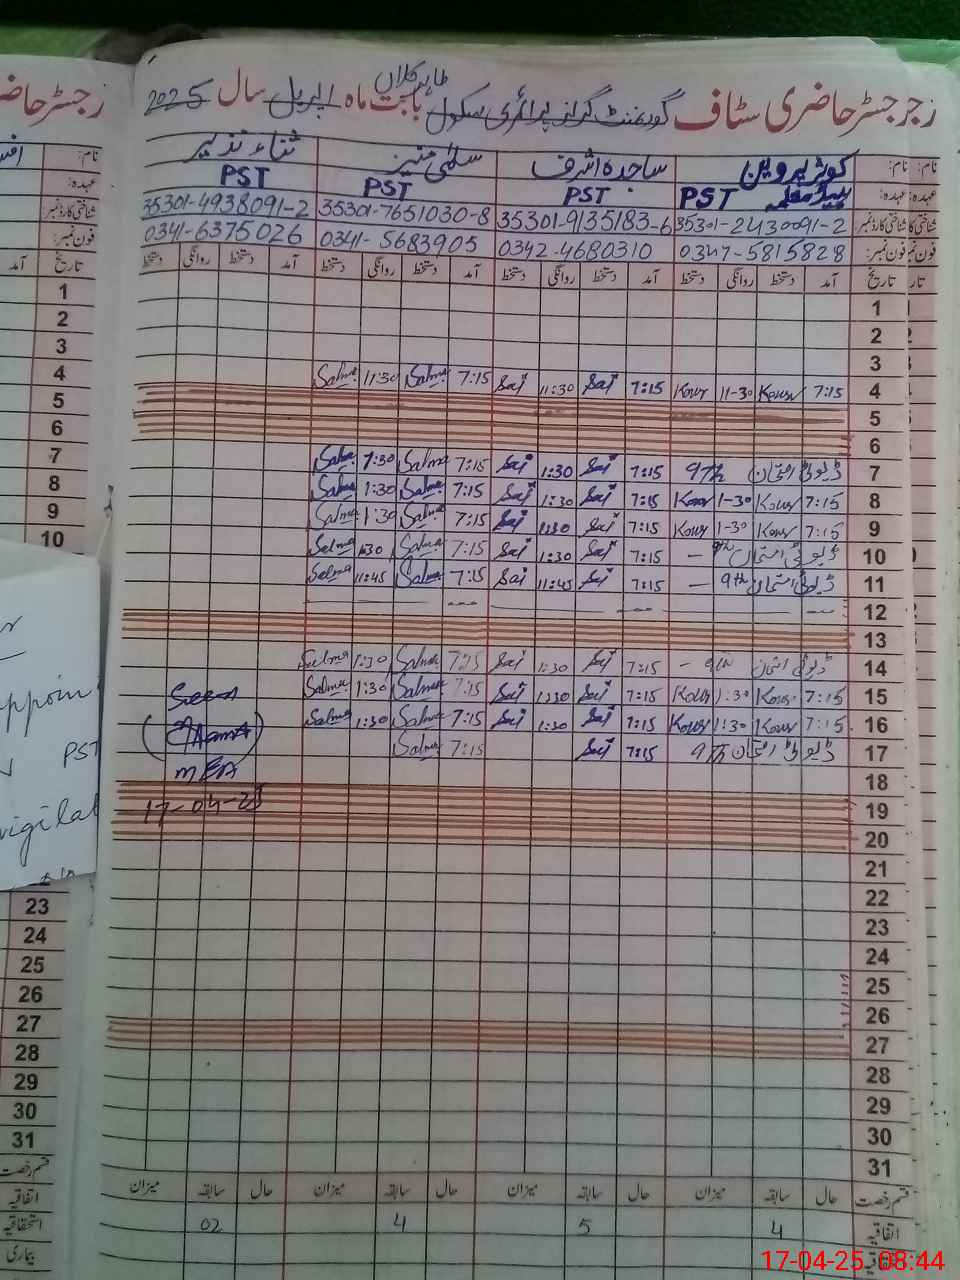 رجسٹر حاضری سٹاف گورنمنٹ گرلز پرائمری سکول طاہر کلاں بابت ماہ اپریل سال 2025
نام: کوثر پروین ساجدہ اشرف سلمیٰ منیر ثناء نذیر
عہدہ: ہیڈ معلمہ PST PST PST PST
شناختی کارڈ نمبر: 35301-2430091-2 35301-9135183-6 35301-7651030-8 35301-4938091-2
فون نمبر: 0347-5815828 0342-4680310 0341-5683905 0341-6375026
تاریخ آمد دستخط روانگی دستخط آمد دستخط روانگی دستخط آمد دستخط روانگی دستخط آمد دستخط روانگی دستخط
1
2
3
4 7:15 Kousr 11-30 Kousr 7:15 Saj 11:30 Saj 7:15 Salma 11:30 Salma
5
6
7 ڈیوٹی امتحان 9th 7:15 Saj 1:30 Saj 7:15 Salma 1:30 Salma
8 7:15 Kousr 1-30 Kousr 7:15 Saj 1:30 Saj 7:15 Salma 1:30 Salma
9 7:15 Kousr 1-30 Kousr 7:15 Saj 1:30 Saj 7:15 Salma 1:30 Salma
10 ڈیوٹی امتحان 9th - 7:15 Saj 1:30 Saj 7:15 Salma 1:30 Salma
11 ڈیوٹی امتحان 9th - 7:15 Saj 11:45 Saj 7:15 Salma 11:45 Salma
12
13
14 ڈیوٹی امتحان 9th - 7:15 Saj 1:30 Saj 7:15 Salma 1:30 Salma
15 7:15 Kousr 1:30 Kousr 7:15 Saj 1:30 Saj 7:15 Salma 1:30 Salma
16 7:15 Kousr 1:30 Kousr 7:15 Saj 1:30 Saj 7:15 Salma 1:30 Salma
17 ڈیوٹی امتحان 9th 7:15 Saj 7:15 Salma
Seen
MEA
17-04-25
18
19
20
21
22
23
24
25
26
27
28
29
30
31
قسم رخصت حال سابقہ میزان حال سابقہ میزان حال سابقہ میزان حال سابقہ میزان
اتفاقیہ 4 5 4 02
رجسٹر حاضری
نام:
عہدہ:
شناختی کارڈ نمبر:
فون نمبر:
تاریخ آمد
1
2
3
4
5
6
7
8
9
10
PST
23
24
25
26
27
28
29
30
31
قسم رخصت
اتفاقیہ
استحقاقیہ
بیماری
17-04-25 08:44